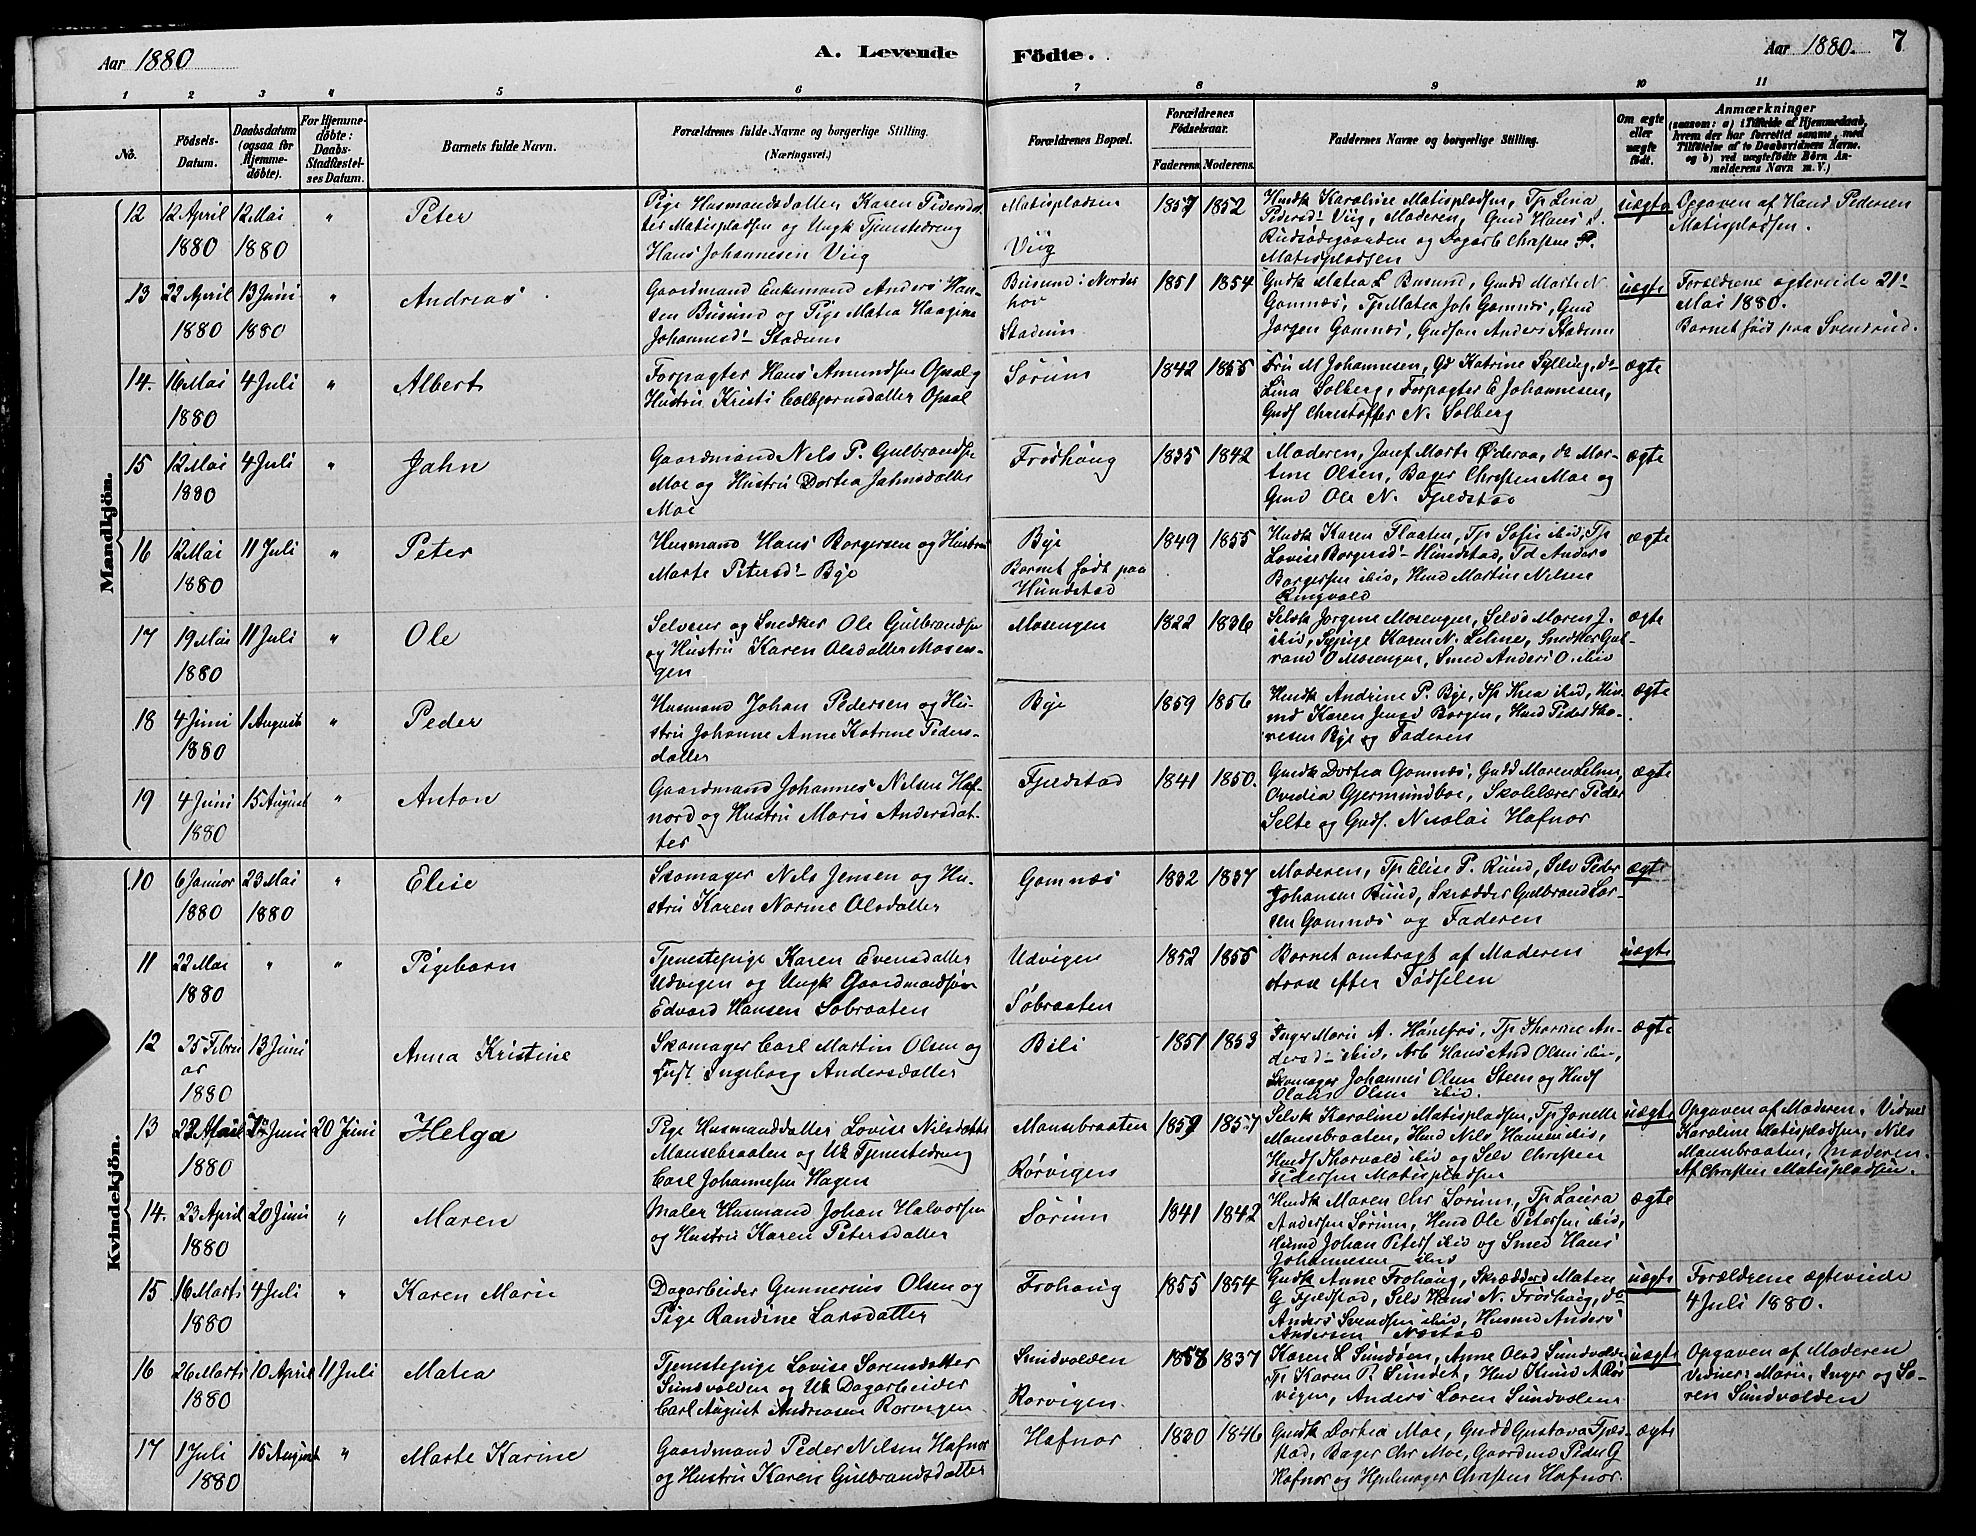 Aar 1880
A. Levende Födte.
Aar 1880. 7
1 2 3 4 5 6 7 8 9 10 11
No.
Födsels-Datum.
Daabsdatum (ogsaa for Hjemme-döbte).
For Hjemme-döbte: Daabs-Stadfæstel-ses Datum.
Barnets fulde Navn.
Forældrenes fulde Navne og borgerlige Stilling.
(Næringsvei.)
Forældrenes Bopæl.
Forældrenes Födselsaar.
Faderens. Moderens.
Faddernes Navne og borgerlige Stilling.
Om ægte eller uægte födt.
Anmærkninger
(saasom: a) i Tilfælde af Hjemmedaab,
hvem der har forrettet samme, med
Tilföielse af to Daabsvidners Navne.
og b) ved uægtefödte Börn An-
melderens Navn m. V.)
Mandkjön.
12 12 April 1880 12 Mai 1880 " Peter
Pige Husmandsdatter Karen Pedersdat-
ter Matispladsen og Ungk Tjenestedreng
Hans Johannesen Viig
Matispladsen
Viig
1857 1852
Husk Karoline Matispladsen, Tp Lina
Pedersd- Viig, Moderen, Gmd Hans
og Dagarb Christen P.
Matispladsen
uægte
Opgaven af Hans Pedersen
Matispladsen.
13 22 April 1880 13 Juni 1880 " Andreas
Gaardmand Enkemand Anders Han-
sen Busund og Pige Matea Haagine
Johannesd- Stadum
Busund i Norder
hov
Stadum
1851 1854
Gmdk Matea L Busund, Gmdd Marte N.
Gomnæs, Tp Matea Joh Gomnæs, Gmd
Jørgen Gomnæs, Gmdsøn Anders Stadum
uægte
Foreldrene egteviede 21-
Mai 1880.
Barnet født paa Svensrud.
14. 16 Mai 1880 4 Juli " Albert
Forpagter Hans Amundsen Opsal og
Hustru Kristi Colbjørnsdatter Opsal
Sørum
1842 1855
Fru M Johannesen, Gd Katrine Sylling, do
Lina Solberg, Forpagter E Johannesen,
Gmds Christoffer N. Solberg
ægte
15 12 Mai 1880 4 Juli " Jahn
Gaardmand Nels P. Gulbrandsen
Moe og Hustru Dortea Jahnsdatter
Moe
Frøhaug
1835 1842
Moderen, Jmf Marte Øderaa, do Mar-
tine Olsen, Bager Christen Moe og
Gmd Ole N. Fjeldstad
ægte
16 12 Mai 1880 11 Juli " Peter
Husmand Hans Borgersen og Hustru
Marte Petersd- Bye
Bye
Barnet født paa
Hundstad
1849 1855
Husk Karen Flaaten, Tp Sofie ibid, Tp
Lovise Borgersd- Hundstad, Td Anders
Borgersen ibid, Hmd Martin Nelsen
Ringvold
ægte
17 19 Mai 1880 11 Juli " Ole
Selveier og Snedker Ole Gulbrandsen
og Hustru Karen Olsdatter Mosen-
gen
Mosengen
1822 1836
Selvk Jørgine Mosengen, Selvd Maren J.
ibid, Sypige Karen N. Lelme, Snedker Gul-
rand O Mosengen, Smed Anders O. ibid
ægte
18 4 Juni 1880 1 August " Peder
Husmand Johan Pedersen og Hu-
stru Johanne Anne Katrine Peders-
datter
Bye
1859 1856
Husk Andrine P. Bye, Tp Krea ibid, Hus-
md Karen Borgen, Husmd Peder Tho-
resen Bye og Faderen
ægte
19 4 Juni 1880 15 August " Anton
Gaardmand Johannes Nilsen Haf-
nord og Hustru Maris Andersdat-
ter
Fjeldstad
1841 1850.
Gmdk Dortea Gomnæs, Gmdd Maren Lelme,
Ovedia Gjermundboe, Skolelærer Peder
Selte og Gmds. Nicolai Hafnor
ægte
Kvindekjön.
10 6 Januar 1880 23 Mai 1880 " Elise
Skomager Nils Jensen og Hu-
stru Karen Norine Olsdatter
Gomnæs
1832 1837
Moderen, Tp Elise P. Rund, Selv Peder
Johansen Rund, Skrædder Gulbrand Lar-
sen Gomnæs og Faderen
ægte
11 22 Mai 1880 " " Pigebarn
Tjenestepige Karen Evensdatter
Udvigen og Ungk Gaardmandssøn
Edvard Hansen Søbraaten
Udvigen
Søbraaten
1852 1855
Barnet ombragt af Moderen
strax efter Fødselen
uægte
12 25 Febru
ar
1880 13 Juni Anna Kristine
Skomager Carl Martin Olsen og
Hust Ingeborg Andersdatter
Bili
1851 1853
Inger Marie A. Hønefos, Tp Thorine An-
dersd- ibid, Arb Hans And Olsen ibid,
Skomager Johannes Olsen Steen og Husf
Olaus Olsen ibid.
ægte
13 22 April 1880 Juni 20 Juni Helga
Pige Husmanddatter Lovise Nilsdatter
Mansebraaten og Uk Tjenestedreng
Carl Johannesen Hagen
Mansebraaten
Rørvigen
1859 1857
Selvk Karoline Matispladsen, Tp Jonette
Mansebraaten, Husmd Nils Hansen ibid,
Husds Thorvald ibid og Selv Christen
Pedersen Matispladsen
uægte
Opgaven af Moderen. Vidner
Karoline Matispladsen, Nils
Mansebraaten, Moderen.
Af Christen Matispladsen.
14. 23 April 1880 20 Juni " Maren
Maler Husmand Johan Halvorsen
og Hustru Karen Petersdatter
Sørum
1841 1842
Husdk Maren Chr Sørum, Tp Laura
Andersen Sørum, Husmd Ole Petersen ibid,
Husmd Johan Peters ibid og Smed Hans
Johannesen ibid
ægte
15 16 Marts 1880 4 Juli " Karen Marie
Dagarbeider Gunnerius Olsen og
Pige Randine Larsdatter
Frohaug
1855 1854
Gmdk Anne Frohaug, Skrædderd Maten
G Fjeldstad, Selv Hans N. Frøshaug, do
Anders Svendsen ibid, Husmd Anders
Andersen Næstad
uægte
Forældrene ægteviede
4 Juli 1880.
16 26 Marts 1880 10 April 11 Juli Matea
Tjenestepige Lovise Sørensdatter
Sundvolden og Uk Dagarbeider
Carl August Andreasen Rorvigen
Sundvolden
Rorvigen.
1857 1837
Karen L Sundøen, Anne Olsd Sundvolden
Tp Karen P. Sundet, Hmd Knud A Rør
vigen, Anders Søren Sundvolden
uægte
Opgaven af Moderen
Vidner: Marie, Inger og Sø-
ren Sundvolden
17 1 Juli 1880 15 August " Marte Karine
Gaardmand Peder Nilsen Hafnor
og Hustru Karen Gulbrandsdatter
Hafnor
1830 1846
Gmdk Dortea Moe, Gmdd Gustava Fjeld-
stad, Bager Chr Moe, Gaardmd Peder G
Hafnor og Hjulmager Christen Hafnor.
ægte